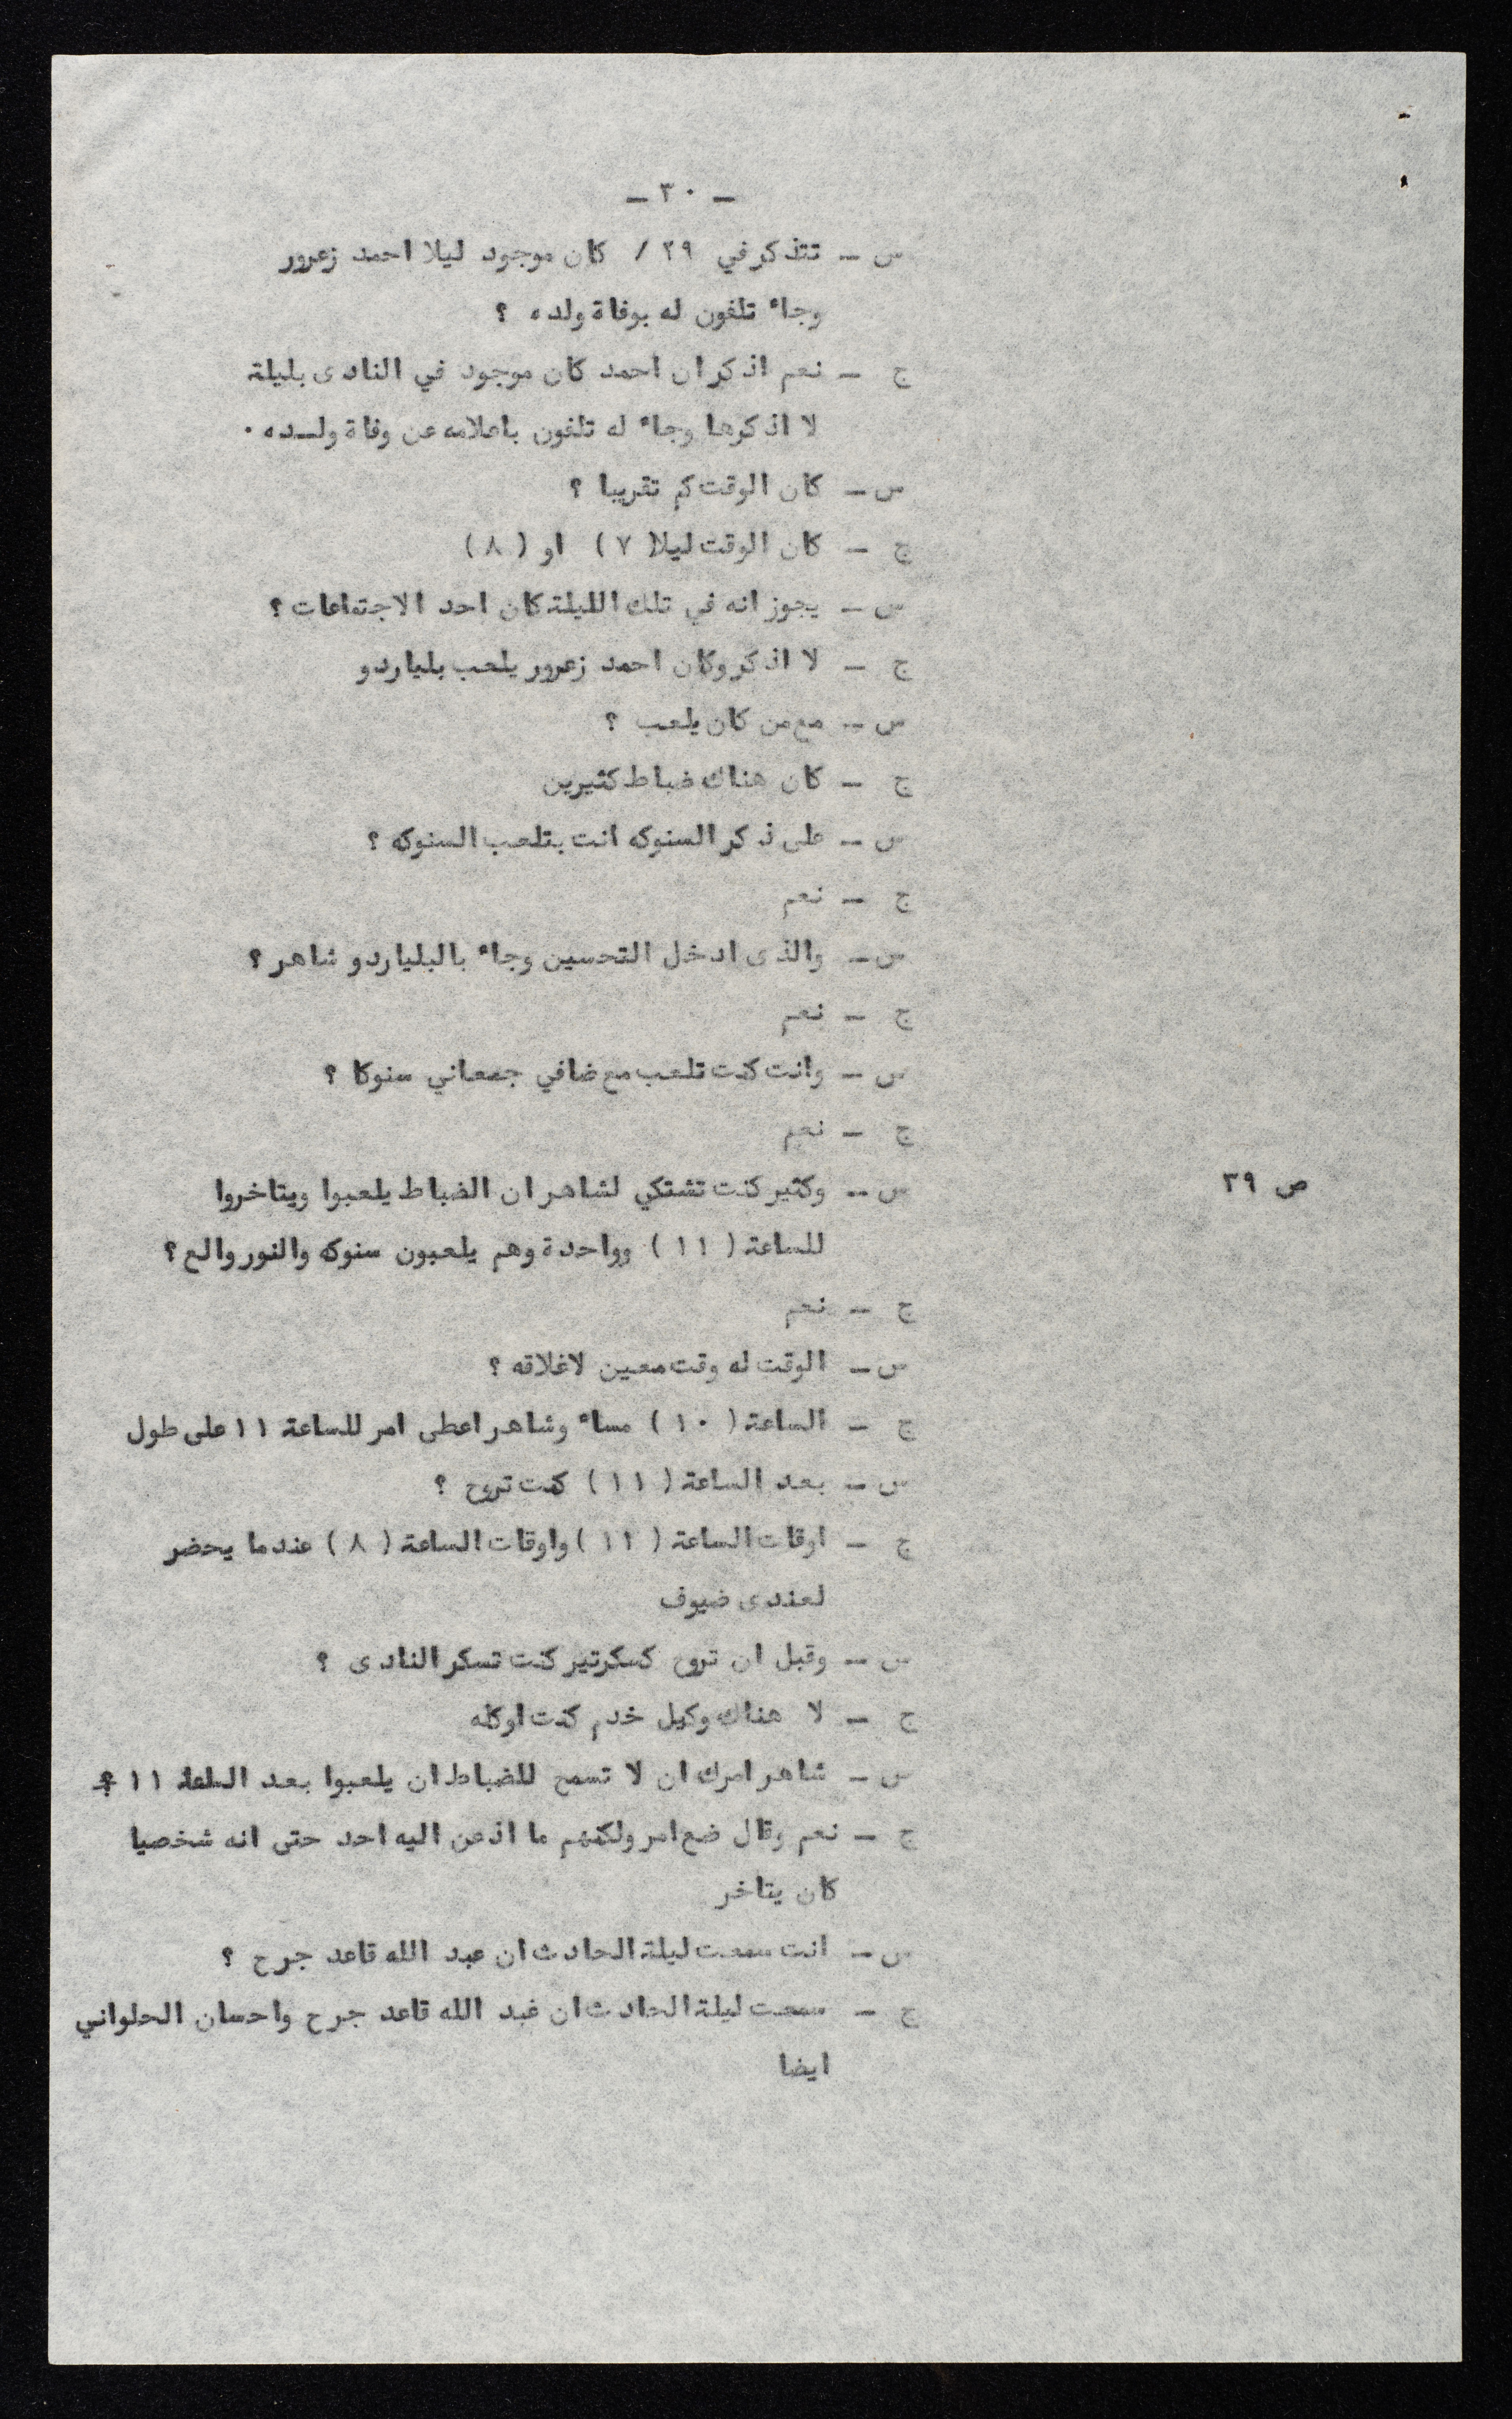 - ٣٠ -
س - تتذكر في ٢٩ / كان موجود ليلا احمد زعرور
وجاء تلفون له بوفاة ولده ؟
ج - نعم اذكر ان احمد كان موجود في النادى بليلة
لا اذكرها وجاء له تلفون باعلامه عن وفاة ولـده .
س - كان الوقت كم تقريبا ؟
ج - كان الوقت ليلا (٧) او (٨)
س - يجوز انه في تلك الليلة كان احد الاجتماعات ؟
ج - لا اذكر وكان احمد زعرور يلعب بلياردو
س - مع من كان يلعب ؟
ج - كان هناك ضباط كثيرين
س - على ذكر السنوكه انت بتلعب السنوكه ؟
ج - نعم
س - والذى ادخل التحسين وجاء بالبلياردو شاهر ؟
ج - نعم
س - وانت كنت تلعب مع ضافي جمعاني سنوكا ؟
ج - نعم
ص ٣٩
س - وكثير كنت تشتكي لشاهر ان الضباط يلعبوا ويتاخروا
للساعة (١١) وواحدة وهم يلعبون سنوكه والنور والع ؟
ج - نعم
س - الوقت له وقت معين لاغلاقه ؟
ج - الساعة (١٠) مساء وشاهر اعطى امر للساعة ١١ على طول
س - بعد الساعة (١١) كنت تروح ؟
ج - اوقات الساعة (١١) واوقات الساعة (٨) عندما يحضر
لعندى ضيوف
س - وقبل ان تروح كسكرتير كنت تسكر النادى ؟
ج - لا هناك وكيل خدم كنت اوكله
س - شاهر امرك ان لا تسمح للضباط ان يلعبوا بعد الساعة ١١ ؟
ج - نعم وقال ضع امر ولكنهم ما اذعن اليه احد حتى انه شخصيا
كان يتاخر
س - انت سمعت ليلة الحادث ان عبد الله قاعد جرح ؟
ج - سمعت ليلة الحادث ان عبد الله قاعد جرح واحسان الحلواني
ايضا